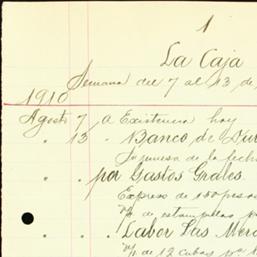 1
La Caja
Semana del 7 al 13 de
1910
Agosto 7 a Existencia hoy
" 13 " Banco de Dur
Su remesa de la fecha
" " por Gastos Grales.
Expreso de 100 pesos
de estampillas
" " Labor Las Merc
de 12 cubos